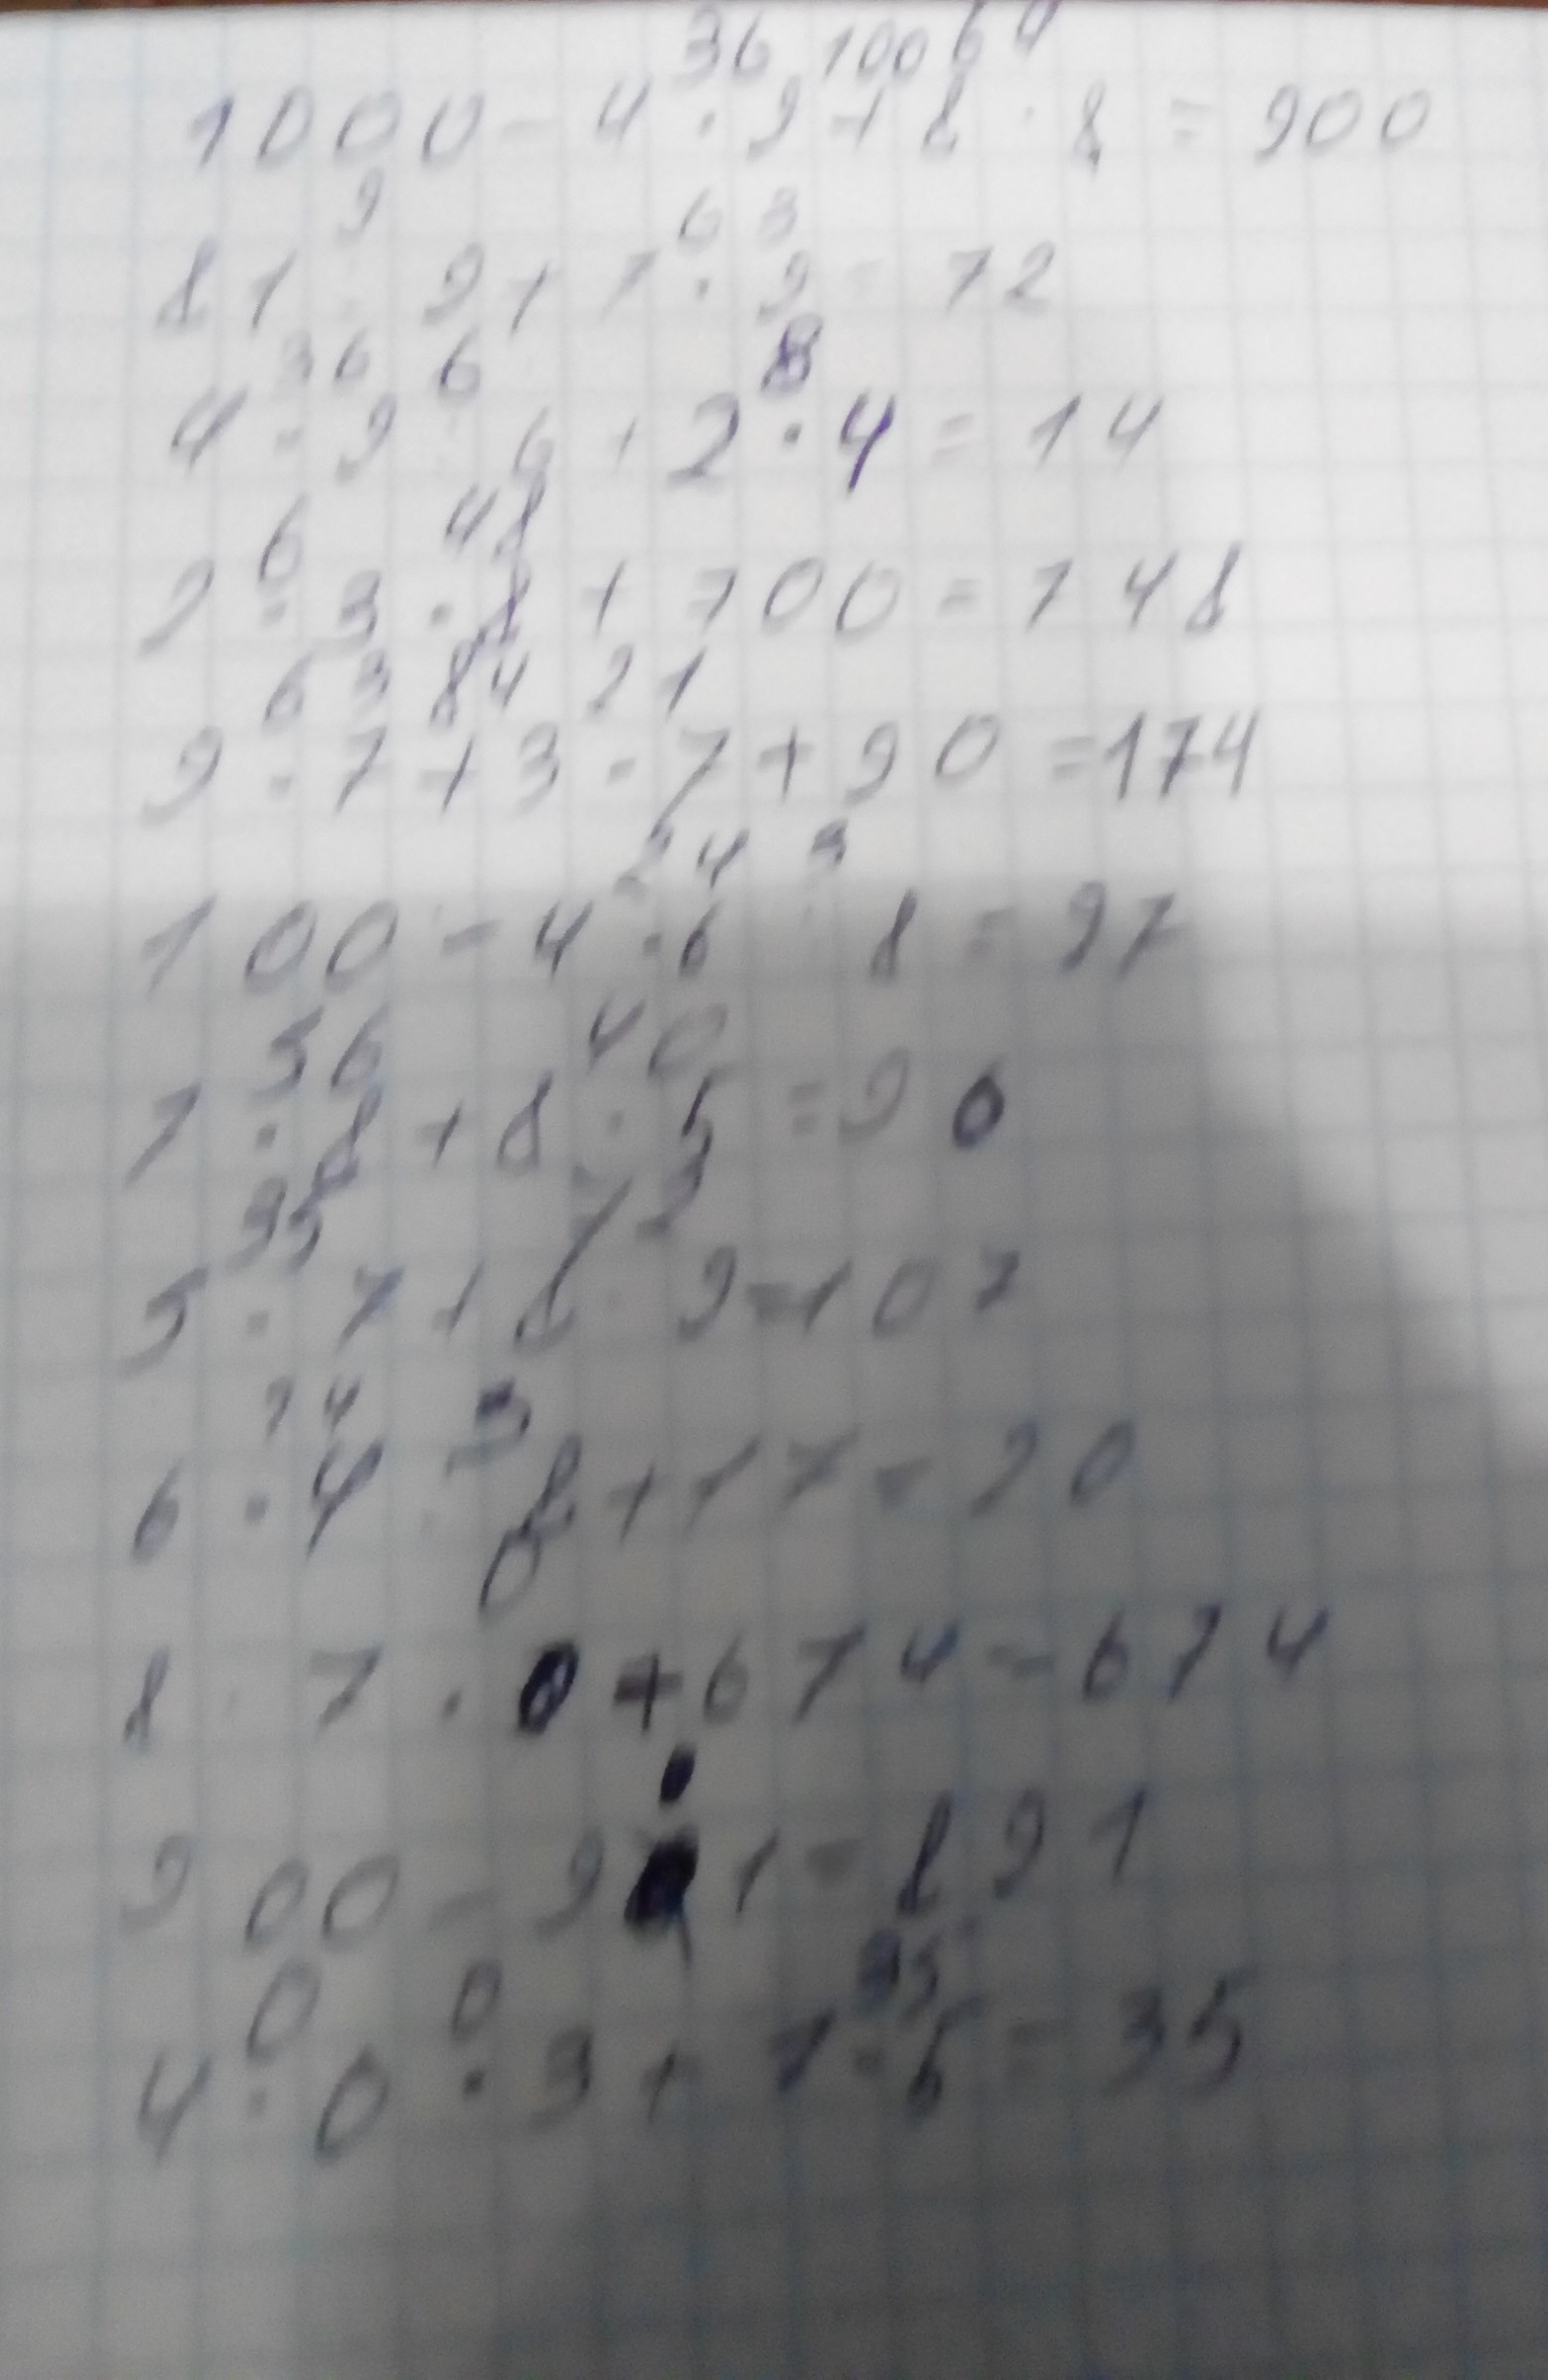 36 100 64
1000 - 4 · 9 + 8 · 8 = 900
9 63
81 : 9 + 7 · 9 = 72
36 6 8
4 · 9 : 6 + 2 · 4 = 14
6 48
2 · 3 · 8 + 700 = 748
63 84 21
9 · 7 + 3 · 7 + 90 = 174
24 3
100 - 4 · 6 : 8 = 97
56 40
7 · 8 + 8 · 5 = 96
35 72
5 · 7 + 8 · 9 = 107
24 3
6 · 4 : 8 + 17 = 20
0
8 · 7 · 0 + 674 = 674
900 - 9 1 = 891
0 0 35
4 · 0 · 9 + 7 · 5 = 35